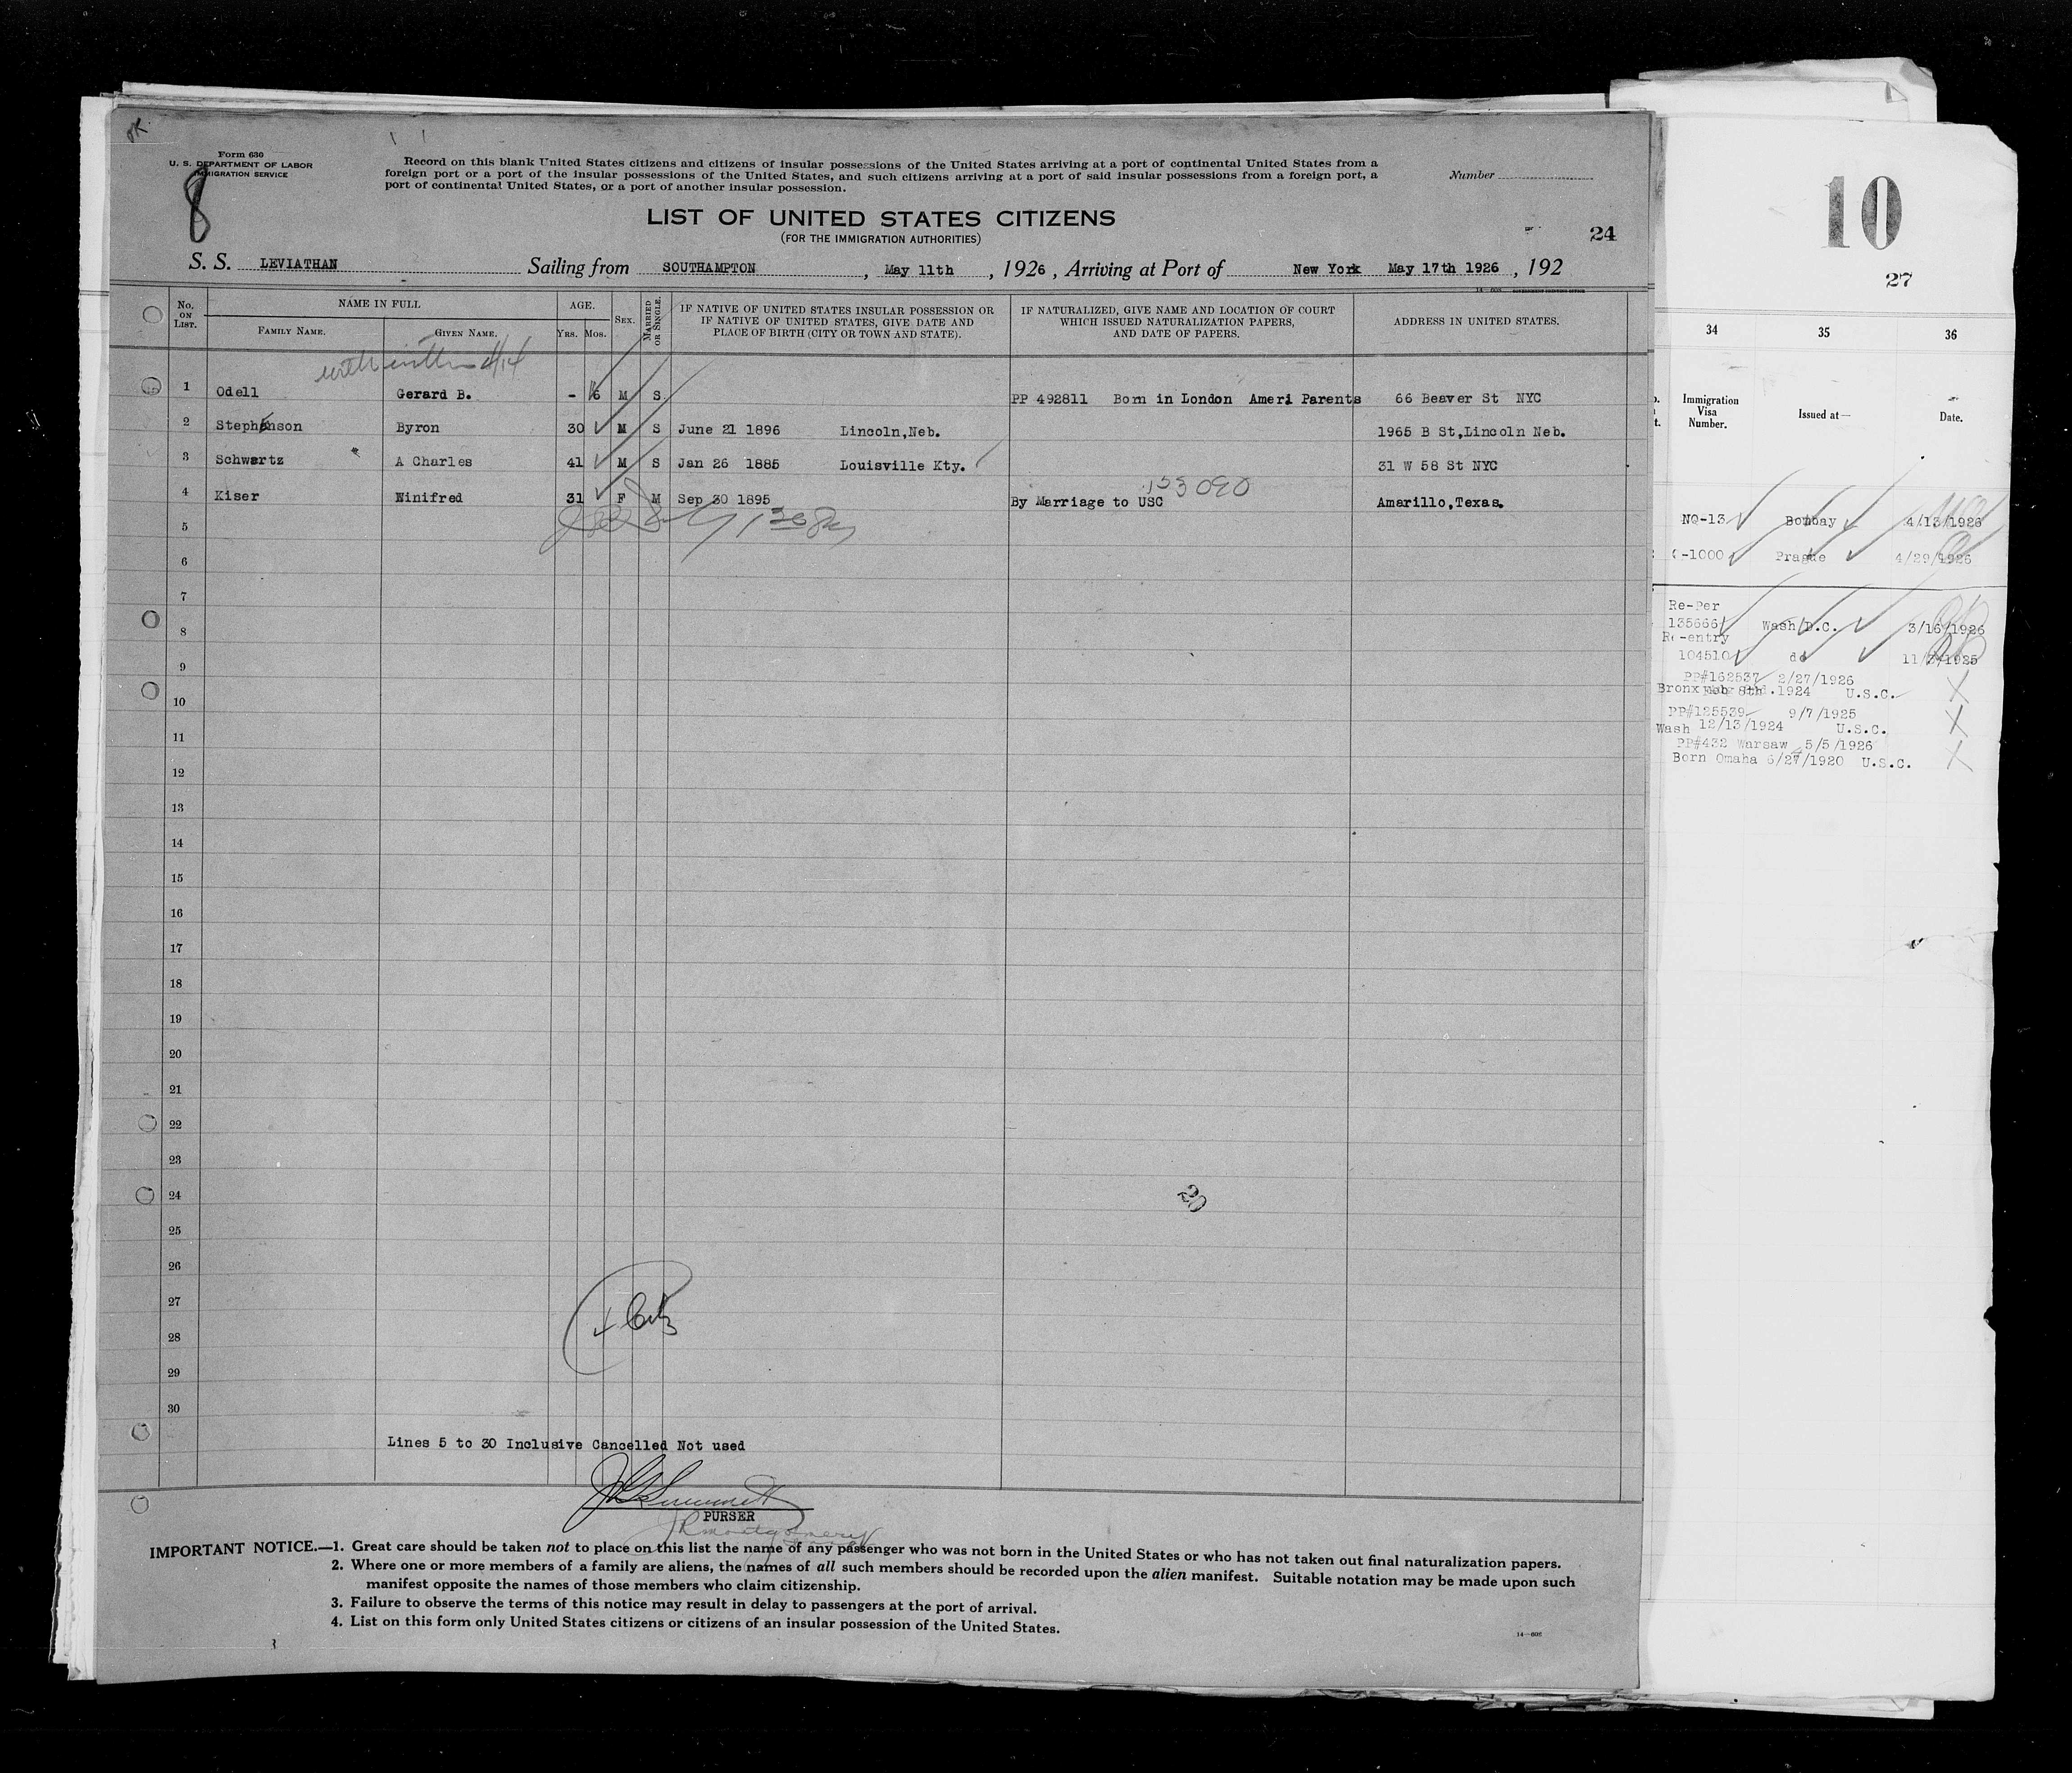 OK
Form 630
U. S. DEPARTMENT OF LABOR
IMMIGRATION SERVICE
8
Record on this blank United States citizens and citizens of insular possessions of the United States arriving at a port of continental United States from a
foreign port or a port of the insular possessions of the United States, and such citizens arriving at a port of said insular possessions from a foreign port, a
port of continental United States, or a port of another insular possession.
Number
LIST OF UNITED STATES CITIZENS
(FOR THE IMMIGRATION AUTHORITIES)
24
S. S. LEVIATHAN Sailing from SOUTHAMPTON , May 11th , 1926 , Arriving at Port of New York May 17th 1926 , 192
No. ON LIST.
NAME IN FULL
FAMILY NAME. GIVEN NAME.
AGE.
YRS. MOS.
SEX.
MARRIED OR SINGLE.
IF NATIVE OF UNITED STATES INSULAR POSSESSION OR
IF NATIVE OF UNITED STATES, GIVE DATE AND
PLACE OF BIRTH (CITY OR TOWN AND STATE).
IF NATURALIZED, GIVE NAME AND LOCATION OF COURT
WHICH ISSUED NATURALIZATION PAPERS,
AND DATE OF PAPERS.
ADDRESS IN UNITED STATES.
1 Odell Gerard B. - 6 M S PP 492811 Born in London Ameri Parents 66 Beaver St NYC
2 Stephenson Byron 30 M S June 21 1896 Lincoln,Neb. 1965 B St,Lincoln Neb.
3 Schwartz A Charles 41 M S Jan 26 1885 Louisville Kty. 31 W 58 St NYC
4 Kiser Winifred 31 F M Sep 30 1895 By Marriage to USC Amarillo,Texas.
5
6
7
8
9
10
11
12
13
14
15
16
17
18
19
20
21
22
23
24
25
26
27
28
29
30
20
Lines 5 to 30 Inclusive Cancelled Not used
PURSER
IMPORTANT NOTICE.—1. Great care should be taken not to place on this list the name of any passenger who was not born in the United States or who has not taken out final naturalization papers.
2. Where one or more members of a family are aliens, the names of all such members should be recorded upon the alien manifest. Suitable notation may be made upon such
manifest opposite the names of those members who claim citizenship.
3. Failure to observe the terms of this notice may result in delay to passengers at the port of arrival.
4. List on this form only United States citizens or citizens of an insular possession of the United States.
10
27
34 35 36
Immigration Visa Number. Issued at— Date.
NQ-13 Bombay 4/13/1926
-1000 Prague 4/29/1926
Re-Per
135666 Wash D.C. 3/16/1926
Re-entry
104510 do 11/ /1925
PP#162537 2/27/1926
Bronx 8th.1924 U.S.C.
PP#125539 9/7/1925
Wash 12/13/1924 U.S.C.
PP#432 Warsaw 5/5/1926
Born Omaha 6/27/1920 U.S.C.